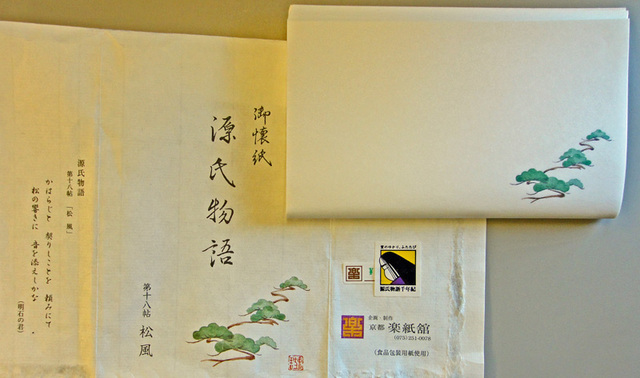 御懐紙
源氏物語
第十八帖 松風
源氏物語
第十八帖「松風」
かはらじと 契りしことを 頼みにて
松の響きに 音を添えしかな
(明石の君)
源氏物語千年紀
楽
企画・製作
京都 楽紙舘
(075)251-0078
(食品包装用紙使用)